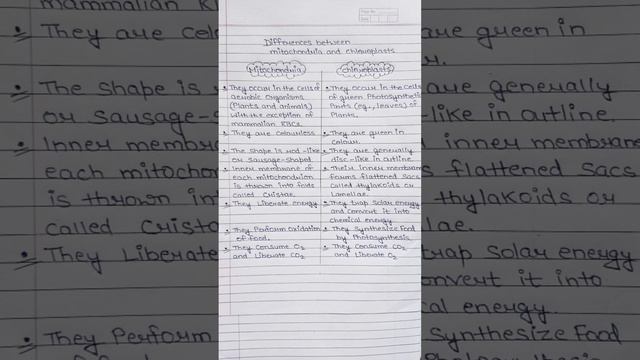 Differences between
mitochondria and chloroplasts
Mitochondria
• They occur in the cells of
aerobic organisms
(Plants and animals)
with the exception of
mammalian RBCs.
• They are colourless
• The shape is rod-like
or sausage-shaped
• Inner membrane of
each mitochondrion
is thrown into folds
called Cristae.
• They liberate energy
• They Perform oxidation
of food.
• They Consume O2
and liberate CO2
Chloroplasts
• They occur in the cells
of green Photosynthetic
Parts (eg., leaves) of
Plants.
• They are green in
colour.
• They are generally
disc-like in artline.
• Their inner membrane
forms flattened sacs
called thylakoids or
Lamellae.
• They trap solar energy
and convert it into
chemical energy
• They synthesize food
by Photosynthesis
• They Consume CO2
and liberate O2
mammalian R
• They are colo
• The shape is
or sausage-s
• Inner membr
each mitochon
is thrown int
called Crista
• They Liberate
• They Perform
are green in
r.
are generally
like in artline.
inner membran
s flattened sacs
thylakoids or
lae.
trap solar energy
onvert it into
cal energy.
Synthesize Food